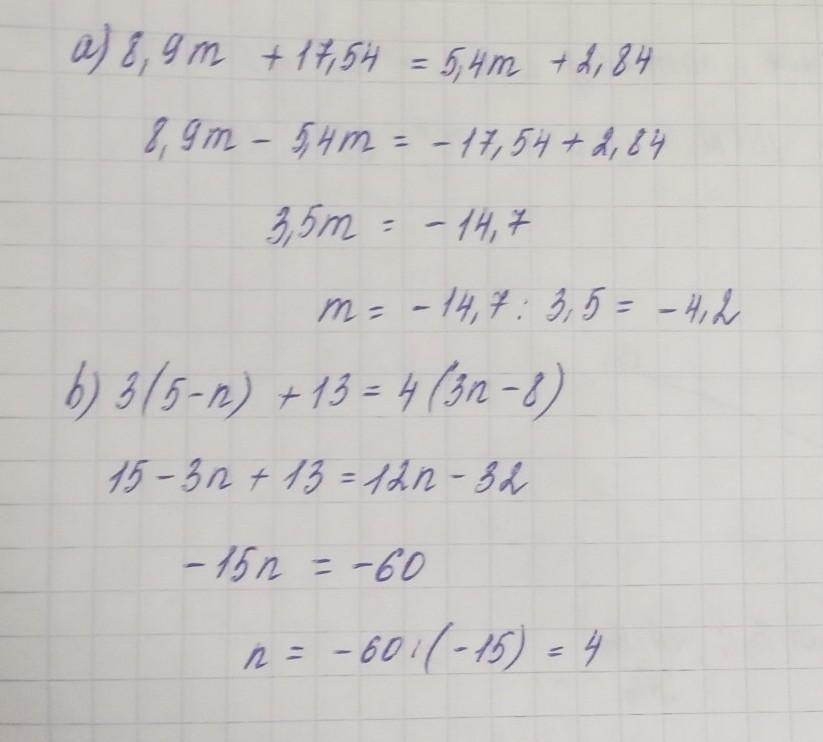 a) 8,9m + 17,54 = 5,4m + 2,84
8,9m - 5,4m = -17,54 + 2,84
3,5m = -14,7
m = -14,7 : 3,5 = -4,2
b) 3(5-n) + 13 = 4(3n-8)
15 - 3n + 13 = 12n - 32
-15n = -60
n = -60 : (-15) = 4